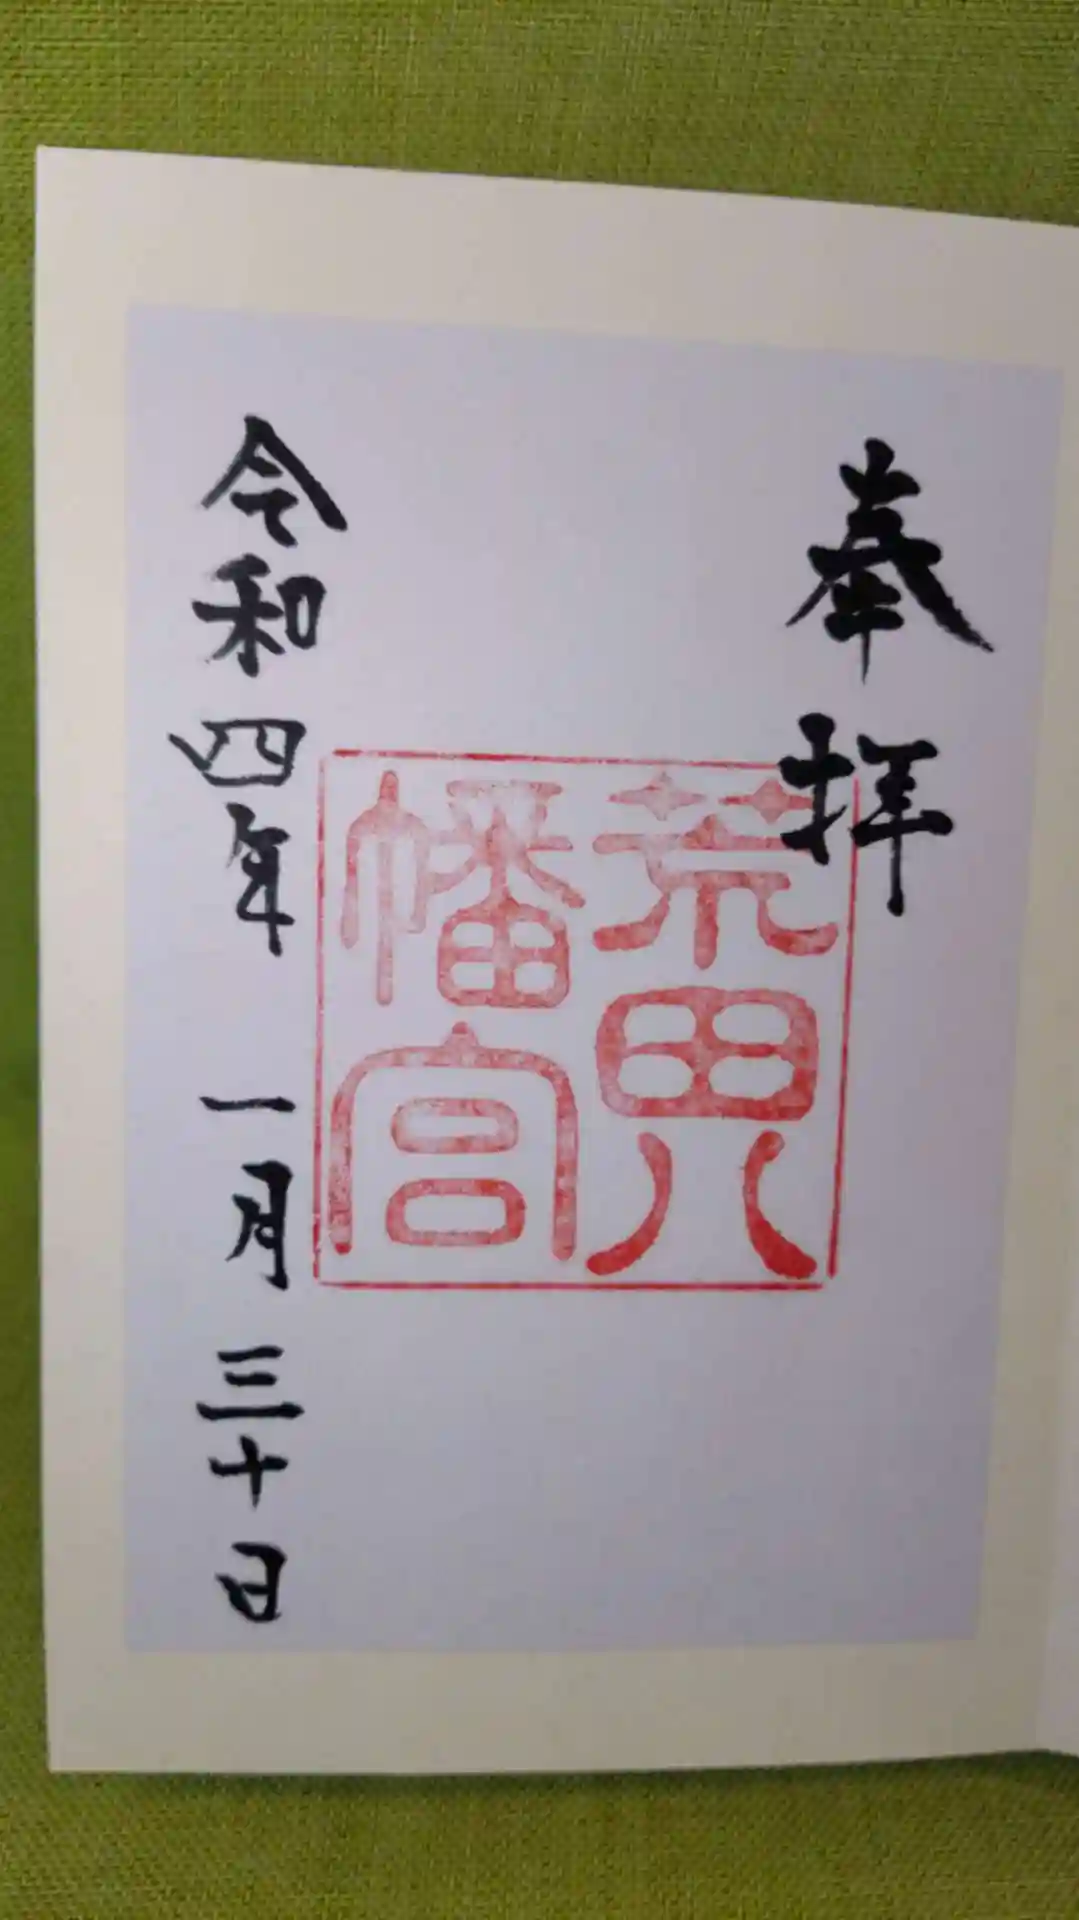 奉拝
荒田八
幡宮
令和四年 一月 三十日